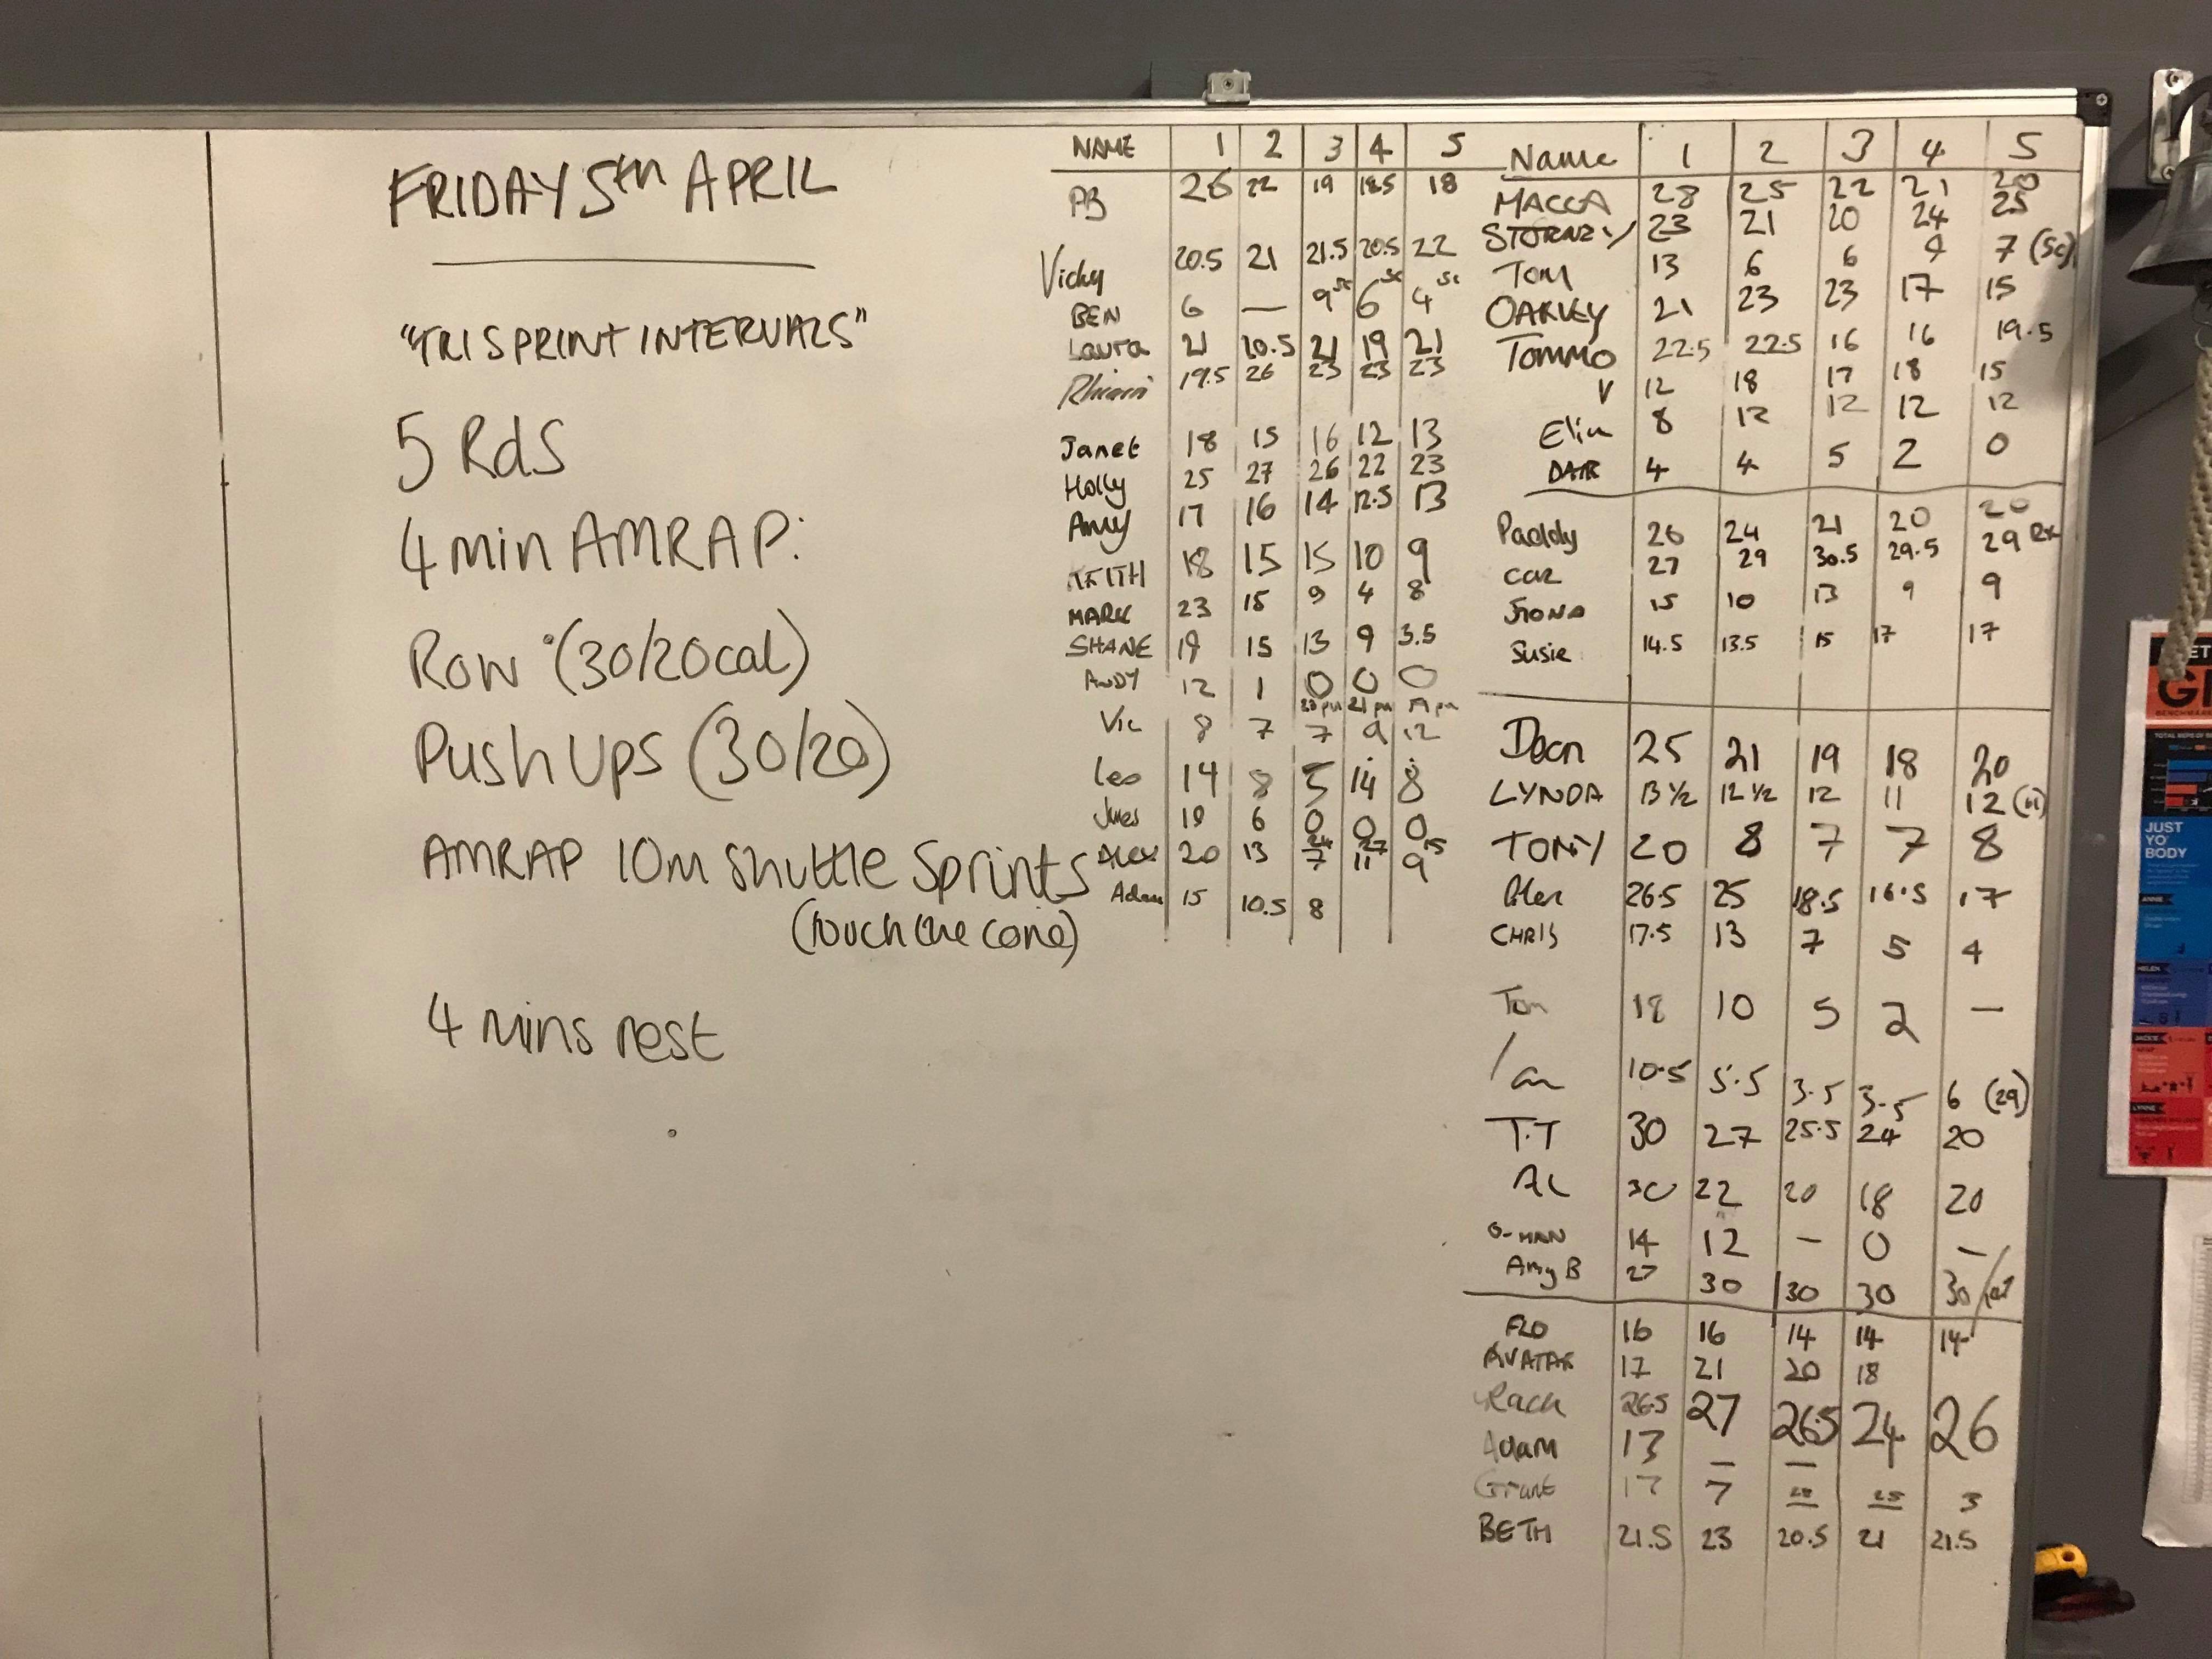 FRIDAY 5th APRIL
"TRI SPRINT INTERVALS"
5 Rds
4 min AMRAP:
Row (30/20cal)
Push Ups (30/20)
AMRAP 10m Shuttle Sprints
(touch the cone)
4 mins rest
NAME 1 2 3 4 5
PB 26 22 19 18.5 18
Vicky 20.5 21 21.5 20.5 22
BEN 6 — 9 sc 6 sc 4 sc
Laura 21 20.5 21 19 21
19.5 26 23 23 23
Janet 18 15 16 12 13
Holly 25 27 26 22 23
Amy 17 16 14 12.5 13
KEITH 18 15 15 10 9
MARK 23 15 9 4 8
SHANE 19 15 13 9 3.5
ANDY 12 1 0 0 0
Vic 8 7 7 9 12
Leo 14 8 5 14 8
19 6 0 0 0
Alex 20 13 7 11 9
Adam 15 10.5 8
Name 1 2 3 4 5
MACCA 28 25 22 21 20
STORMZY 23 21 20 24 25
TOM 13 6 6 9 7 (Sc)
OAKLEY 21 23 23 17 15
TOMMO 22.5 22.5 16 16 19.5
V 12 18 17 18 15
8 12 12 12 12
4 4 5 2 0
Paddy 26 24 21 20 20
27 29 30.5 29.5 29 Rx
15 10 13 9 9
Susie 14.5 13.5 15 17 17
Dean 25 21 19 18 20
LYNDA 13 ½ 12 ½ 12 11 12
TONY 20 8 7 7 8
26.5 25 18.5 16.5 17
CHRIS 17.5 13 7 5 4
Tom 18 10 5 2 —
Ian 10.5 5.5 3.5 3.5 6 (29)
T.T 30 27 25.5 24 20
AL 30 22 20 18 20
G-MAN 14 12 — 0 —
Amy B 27 30 30 30 30
FLO 16 16 14 14 14
AVATAR 17 21 20 18
Rach 26.5 27 26.5 24 26
Adam 13 — —
Grant 17 7 28 25 3
BETH 21.5 23 20.5 21 21.5
JUST
YO'
BODY
ANNIE
HELEN
JACKIE
LYNNE